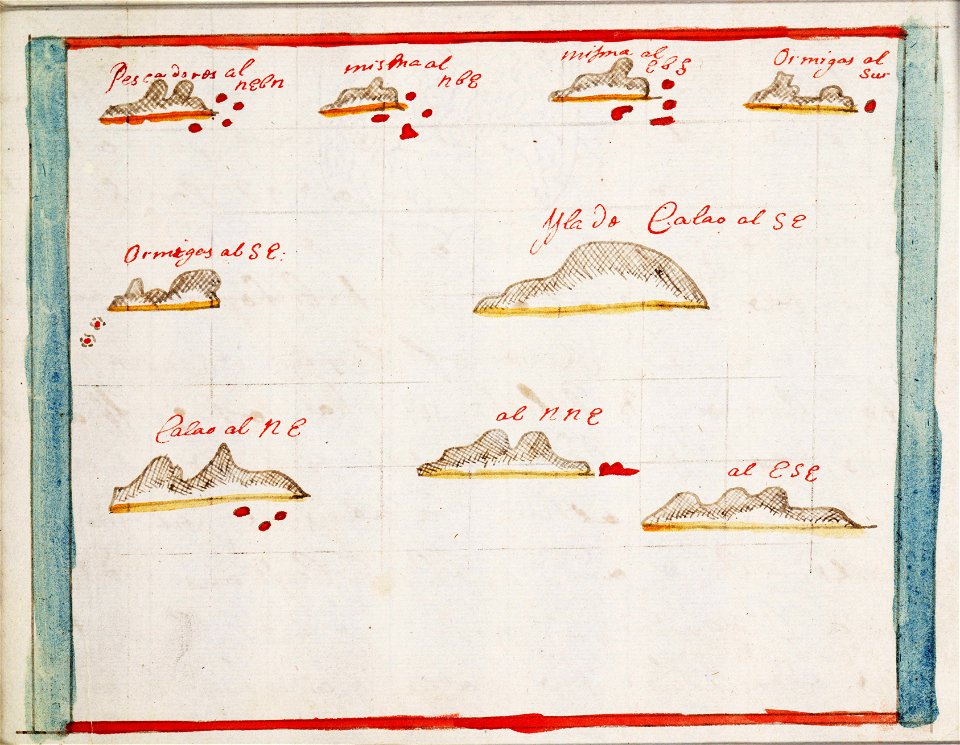 Pescadores al
nEbn
misma al
nbE
misma al
EbS
Ormigas al
Sur
Ormigas al SE:
Ysla de Calao al SE
Calao al NE
al NNE
al ESE